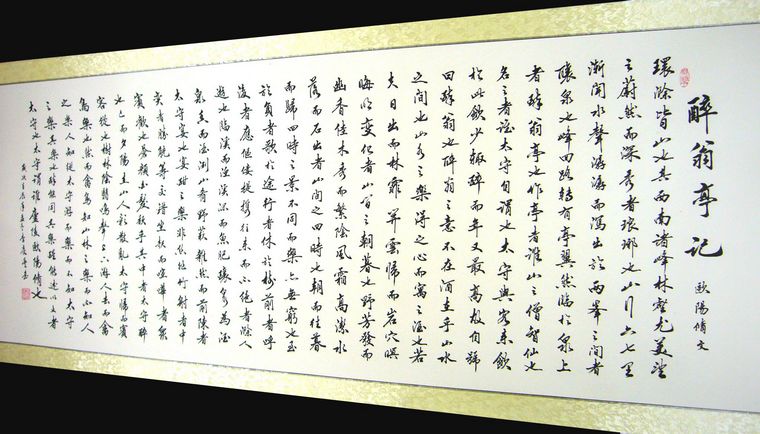 醉翁亭記
歐陽脩文
環滁皆山也其西南諸峰林壑尤美望
之蔚然而深秀者琅琊也山行六七里
漸聞水聲潺潺而瀉出於兩峯之間者
釀泉也峰回路轉有亭翼然臨於泉上
者醉翁亭也作亭者誰山之僧智仙也
名之者誰太守自謂也太守與客來飲
於此飲少輒醉而年又最高故自號
曰醉翁也醉翁之意不在酒在乎山水
之間也山水之樂得之心而寓之酒也若
夫日出而林霏開雲歸而岩穴暝
晦明變化者山間之朝暮也野芳發而
幽香佳木秀而繁陰風霜高潔水
落而石出者山間之四時也朝而往暮
而歸四時之景不同而樂亦無窮也至
於負者歌於途行者休於樹前者呼
後者應傴僂提攜往來而不絕者滁人
遊也臨溪而漁溪深而魚肥釀泉為酒
泉香而酒洌山肴野蔌雜然而前陳者
太守宴也宴酣之樂非絲非竹射者中
奕者勝觥籌交錯坐起而諠譁者衆
賓歡也蒼顏白髮頹乎其中者太守醉
也已而夕陽在山人影散亂太守歸而賓
客從也樹林陰翳鳴聲上下遊人去而禽
鳥樂也然而禽鳥知山林之樂而不知人
之樂人知從太守遊而樂而不知太守
之樂其樂也醉能同其樂醒能述以文者
太守也太守謂誰廬陵歐陽脩也